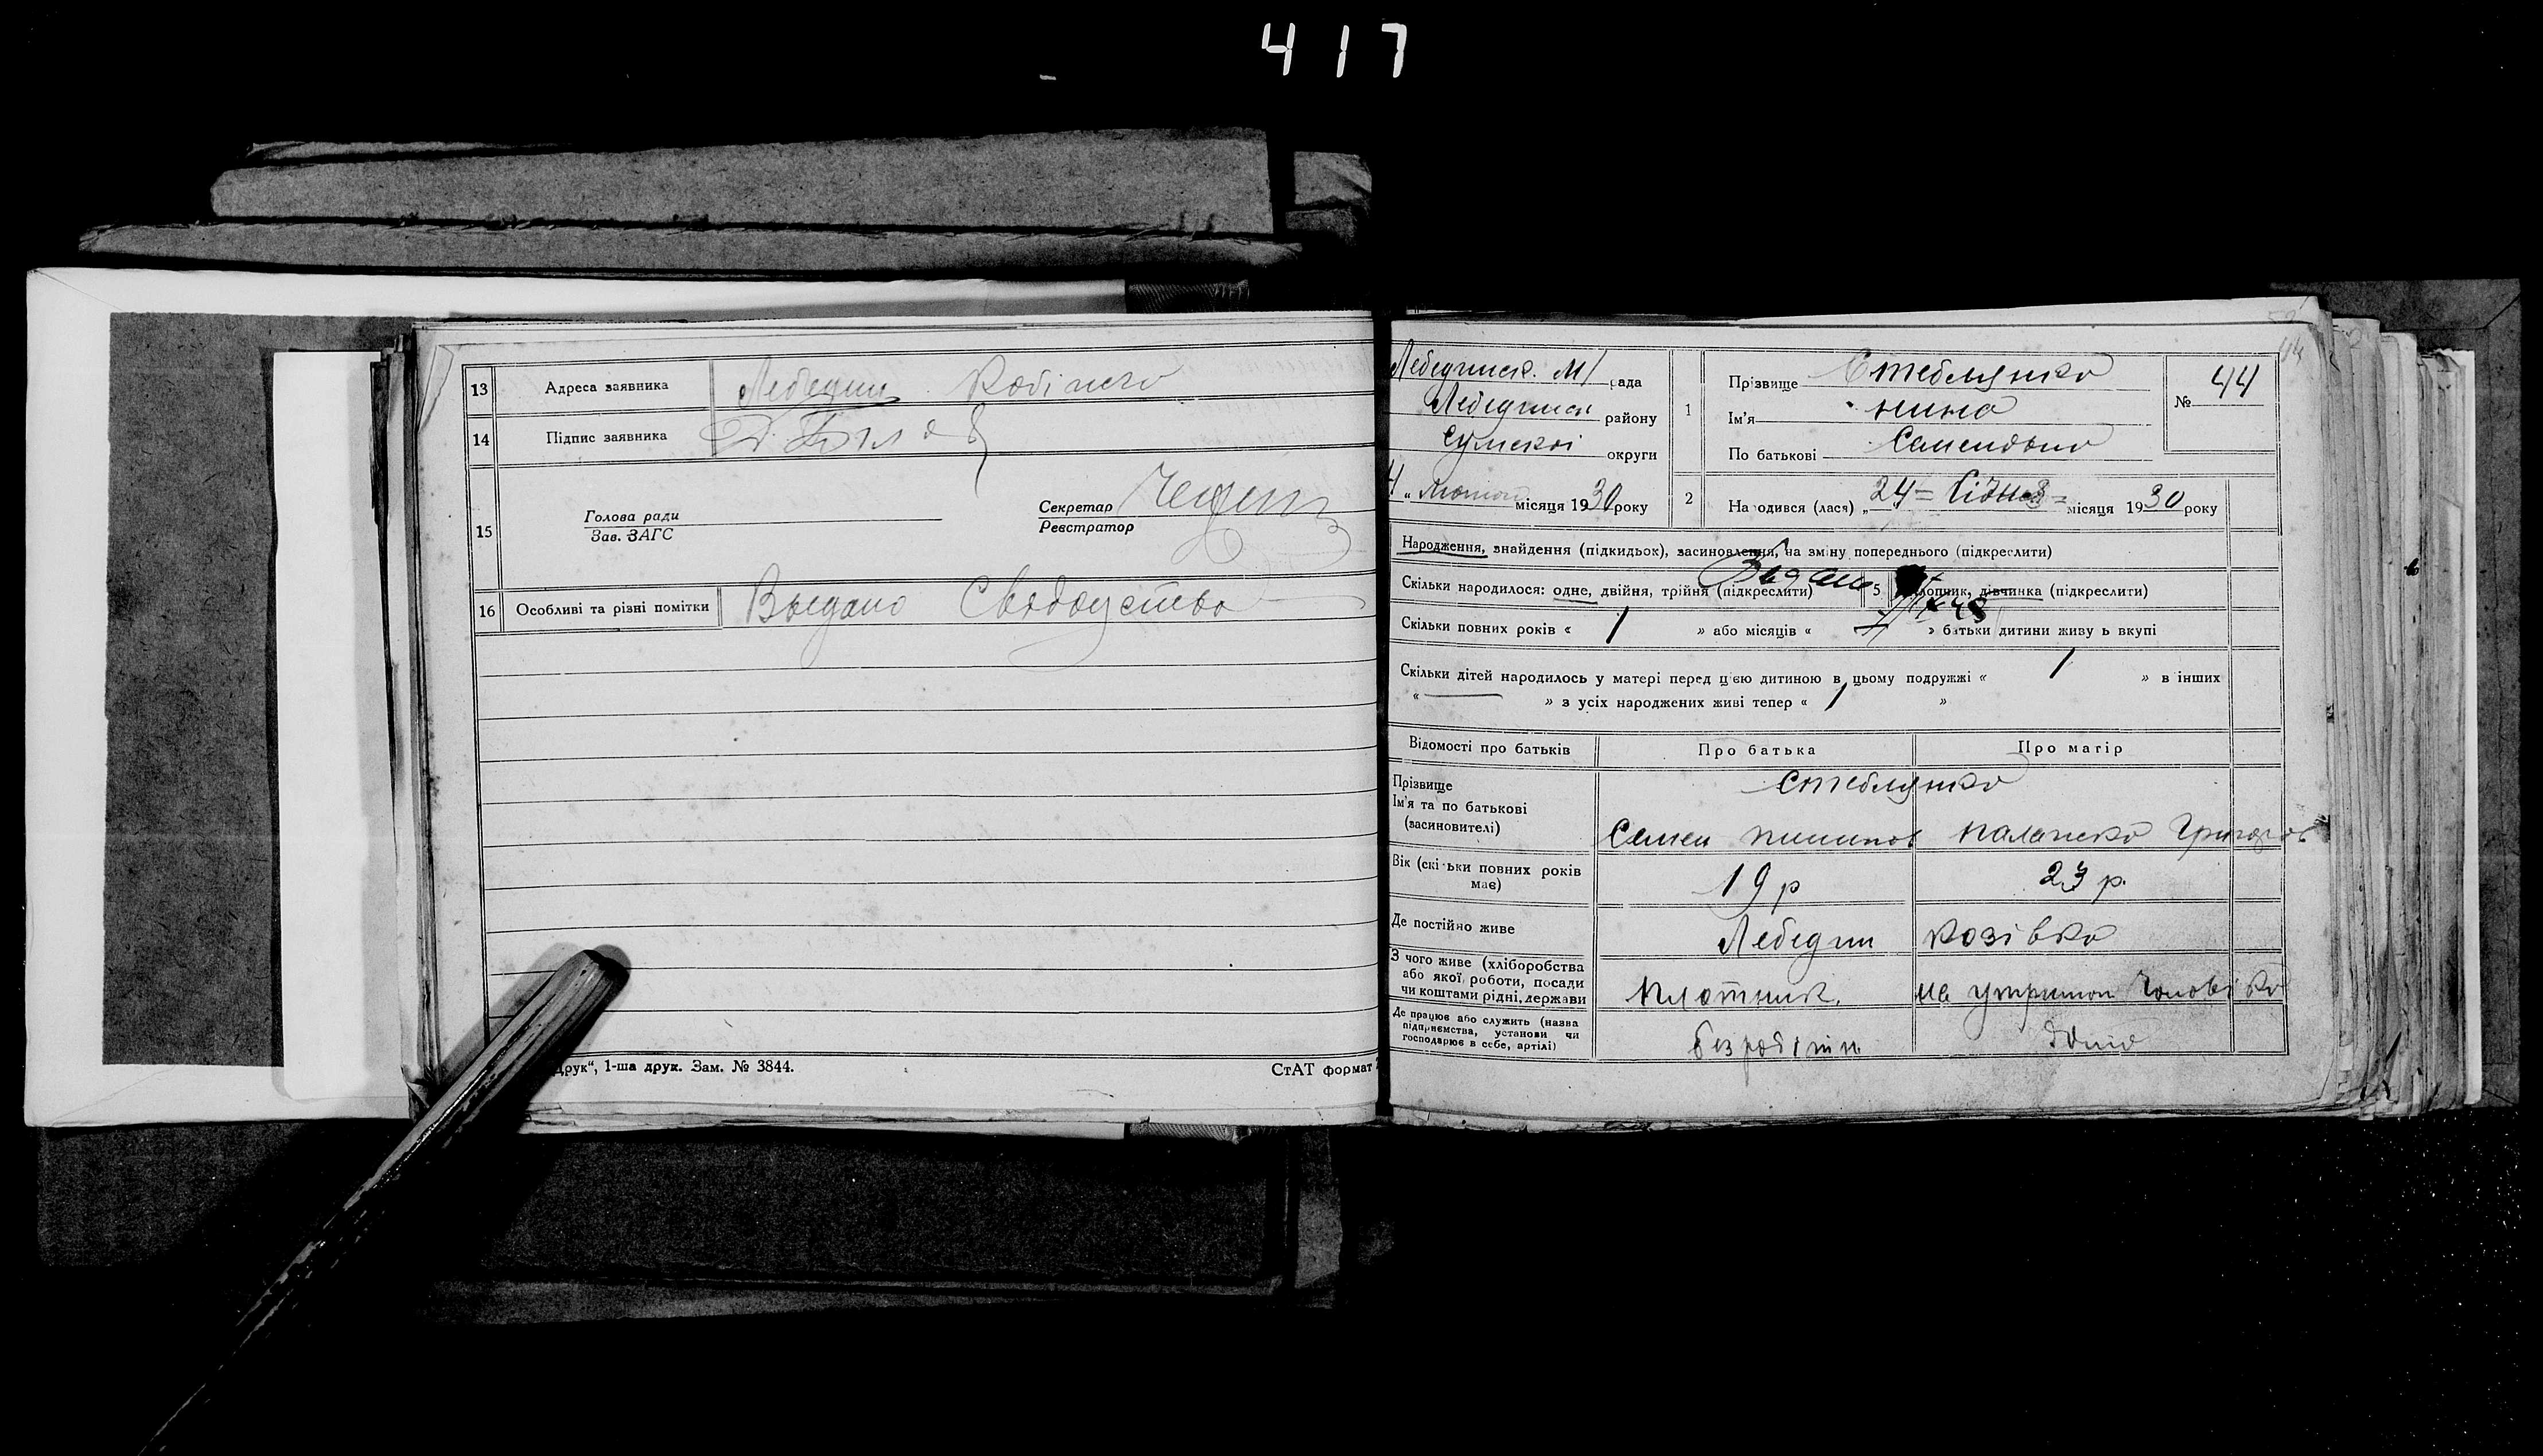 417
13 Адреса заявника Лебедин
14 Підпис заявника
15 Голова ради Секретар
Зав. ЗАГС Реєстратор
16 Особливі та різні помітки Выдано Свидоцтво
друк“, 1-ша друк. Зам. № 3844.
СтАТ формат
44
Лебединск. М/ рада
Лебединск району
Сумскоі округи
4 „ лютого місяця 1930 року
1 Прізвище Стеблянко
Ім'я Нина
По батькові Семеновна
№ 44
2 Народився (лася) „ 24 = Січня = місяця 1930 року
Народження, знайдення (підкидьок), засиновлення, на зміну попереднього (підкреслити)
Скільки народилося: одне, двійня, трійня (підкреслити) 5 хлопчик, дівчинка (підкреслити)
Скільки повних років « 1 » або місяців « » батьки дитини живуть вкупі
Скільки дітей народилось у матері перед цією дитиною в цьому подружжі « 1 » в інших
« — » з усіх народжених живі тепер « 1 »
Відомості про батьків Про батька Про матір
Прізвище Стеблянко
Ім'я та по батькові Семен Пилипов Палажка Григоров
(засиновителі)
Вік (скільки повних років 19 р 23 р.
має)
Де постійно живе Лебедин Козівка
З чого живе (хліборобства
або якої роботи, посади
чи коштами рідні, держави Плотник. на утриман чоловіка
Де працює або служить (назва
підприємства, установи чи
господарює в себе, артілі) безробітн.